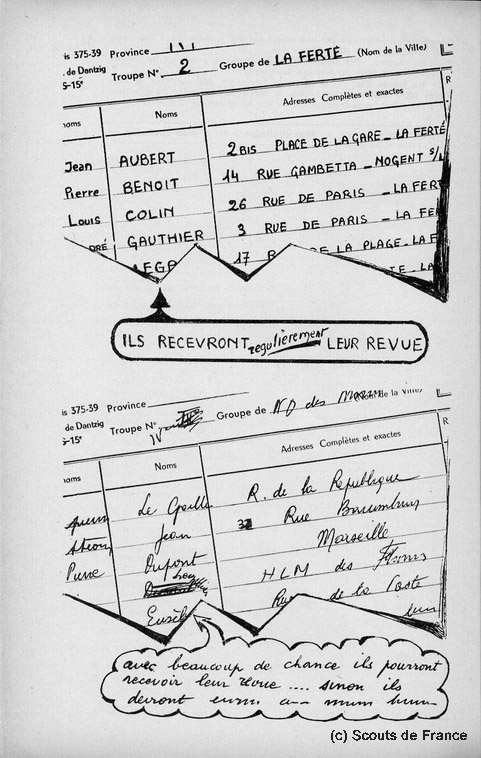 is 375-39 Province
. de Dantzig
Troupe N° 2 Groupe de LA FERTÉ (Nom de la Ville)
5-15e
noms Noms Adresses Complètes et exactes R
Jean AUBERT 2 BIS PLACE DE LA GARE _ LA FERTÉ
Pierre BENOIT 14 RUE GAMBETTA _ NOGENT S/
Louis COLIN 26 RUE DE PARIS _ LA FER
DRÉ GAUTHIER 3 RUE DE PARIS _ LA FE
LEGA 17 R DE LA PLAGE _ LA F
TE _ LA
ILS RECEVRONT régulièrement LEUR REVUE
is 375-39 Province
. de Dantzig
Troupe N° IV Groupe de ND des (Nom de la Ville)
5-15e
noms Noms Adresses Complètes et exactes R
Le R. de la République
Jean Rue
Marseille
Pierre Dupont HLM des
Rue de la Poste
Eusèb
avec beaucoup de chance ils pourront
recevoir leur revue .... sinon ils
devront
(c) Scouts de France